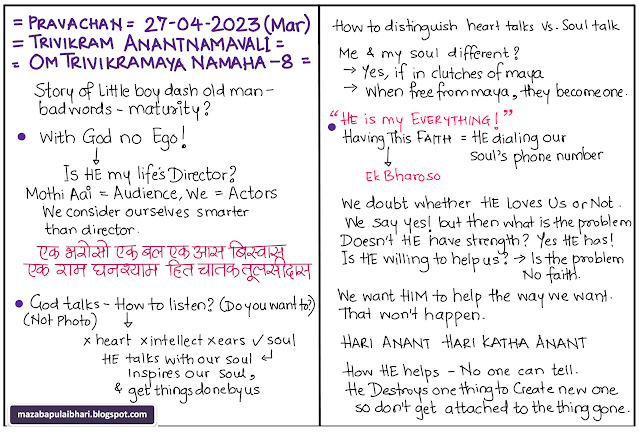 = PRAVACHAN = 27-04-2023 (Mar)
= TRIVIKRAM ANANTNAMAVALI =
= OM TRIVIKRAMAYA NAMAHA - 8 =
Story of Little boy dash old man -
bad words - maturity?
• With God no Ego!
↓
Is HE my life's Director?
Mothi Aai = Audience, We = Actors
We consider ourselves smarter
than director.
एक भरोसो एक बल एक आस बिस्वास
एक राम घनश्याम हित चातक तूलसीदास
• God talks - How to listen? (Do you want to?)
(Not Photo) ↓
× heart × intellect × ears ✓ soul
HE talks with our soul ↲
Inspires our soul,
& get things done by us
mazabapulaibhari.blogspot.com
How to distinguish heart talks vs. Soul talk
Me & my soul different?
→ Yes, if in clutches of maya
→ When free from maya, they become one.
"HE is my EVERYTHING!"
• Having This FAITH = HE dialing our
↓ Soul's phone number
Ek Bharoso
We doubt whether HE Loves Us or Not.
We say yes! but then what is the problem
Doesn't HE have strength? Yes HE has!
Is HE willing to help us? → Is the problem
No faith.
We want HIM to help the way we want.
That won't happen.
HARI ANANT HARI KATHA ANANT
How HE helps - No one can tell.
He Destroys one thing to Create new one
so don't get attached to the thing gone.